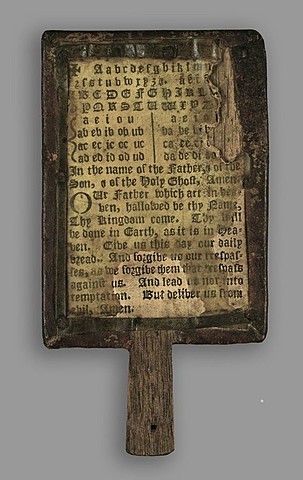 ✠ Aabcdefghiklm
rsstuvwxyz. aei
BCDEFGHIKL
PQRSTUWXYZ
a e i o u a e i o
ab eb ib ob ub ba be bi
ac ec ic oc uc ca ce ci
ad ed id od ud da de di do
In the name of the Father, & of the
Son, & of the Holy Ghost, Amen.
Our Father which art in hea-
ven, hallowed be thy Name,
Thy Kingdom come. Thy will
be done in Earth, as it is in Hea-
ven. Give us this day our daily
bread. And forgive us our trespas-
ses, as we forgive them that trespass
against us. And lead us not into
temptation. But deliver us from
evil, Amen.